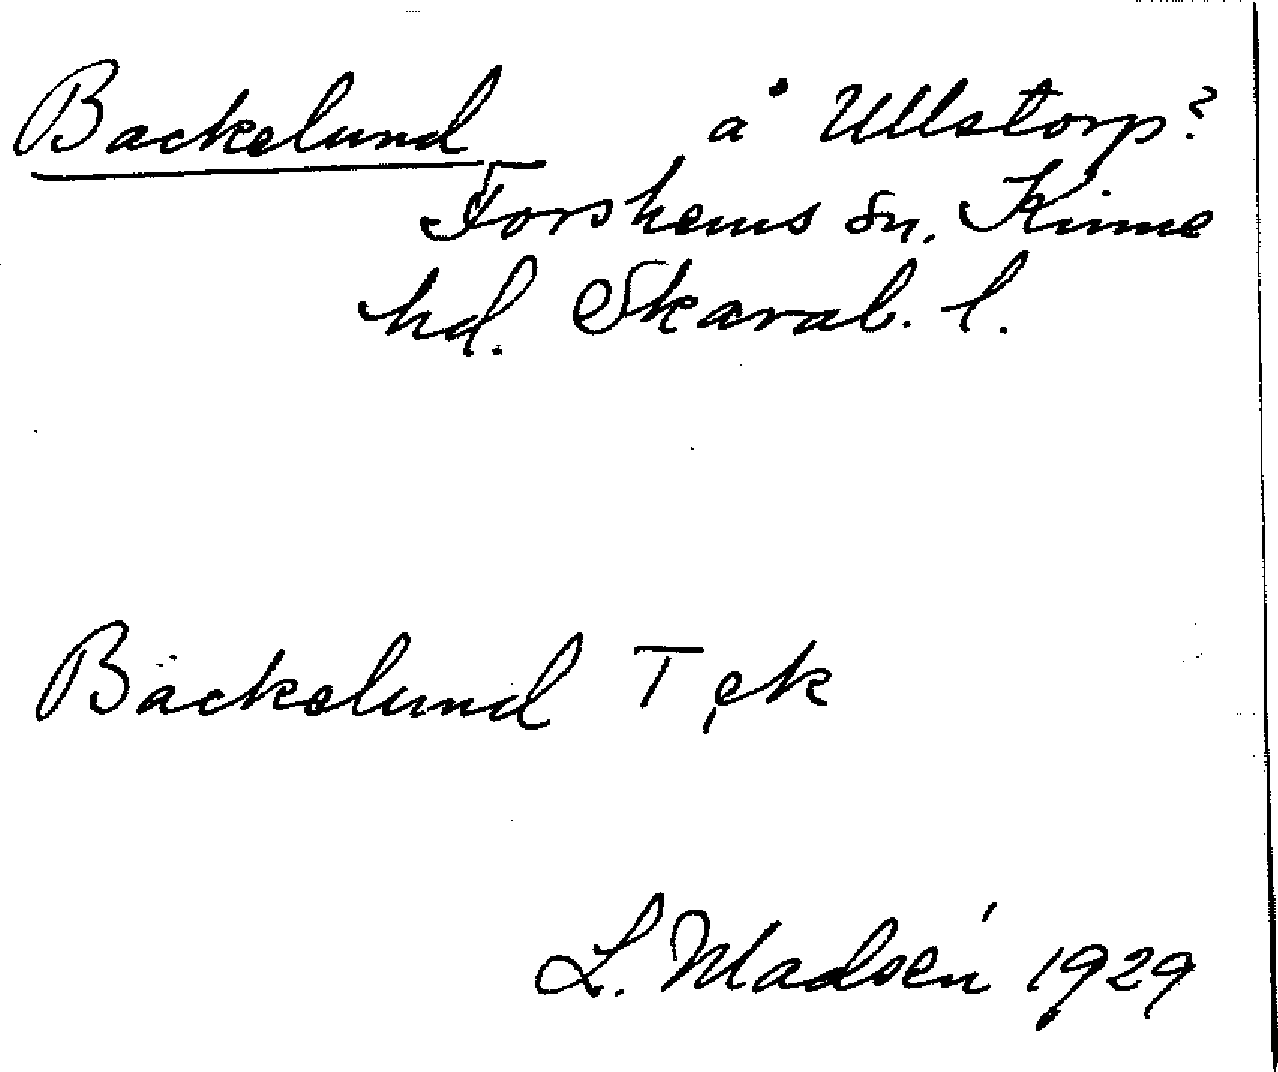 Backelund å Ullstorp?
Forshems Sn. Kinne
hd. Skarab. l.
Bäckelund T, ek
L. Madsén 1929